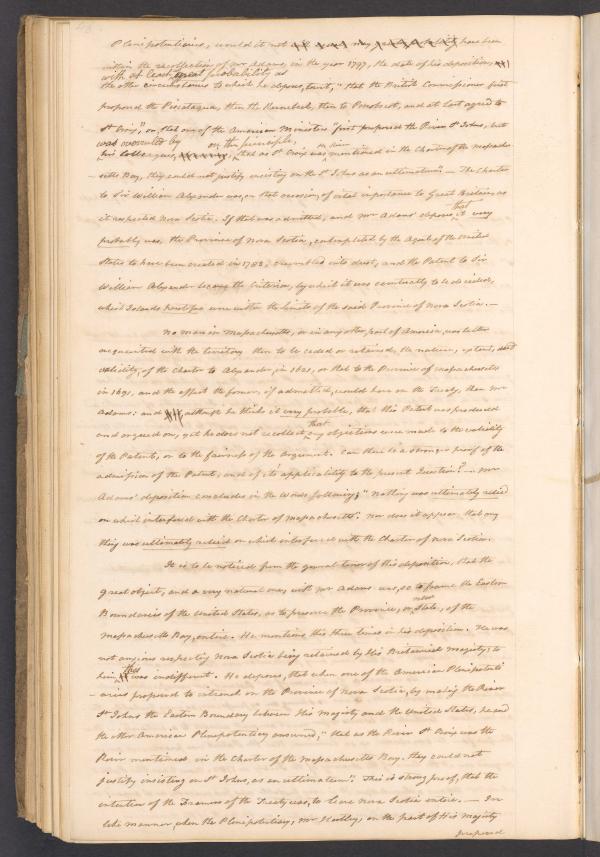 Plenipotentiaries, would it not have been
within the recollection of Mr Adams, in the year 1797, the date of his deposition,
with at least, great probability as
the other circumstances to which he deposes, tow't, "that the British Commissioners first
proposed the Piscataqua, then the Kennebeck, then to Penobscot, and at last agreed to
St Croix," or, that one of the American Ministers "first proposed the River St Johns, but
was overruled by on the principle, a river
his Colleagues, that as St Croix was mentioned in the Charter of the Massachu
-setts Bay, they could not justify insisting on the St Johns as an ultimatum"— The Charter
to Sir William Alexander was, on that occasion, of vital importance to Great Britain, as
it respected Nova Scotia. If that was admitted, and Mr Adams deposes, that it very
probably was, the Province of Nova Scotia, contemplated by the Agent of the United
States to have been created in 1782, crumbled into dust, and the Patent to Sir
William Alexander became the Criterion, by which it was eventually to be decided,
which Islands heretofore were within the limits of the said Province of Nova Scotia.—
No man in Massachusetts, or in any other part of America, was better
acquainted with the territory then to be ceded or retained, the nature, extent, and
validity, of the Charter to Alexander, in 1621, or that to the Province of Massachusetts
in 1691, and the effect the former, if admitted, would have on the Treaty, than Mr
Adams: and altho' he thinks it very probable, that this Patent was produced
and argued on, yet he does not recollect that any objections were made to the validity
of the Patent, or to the fairness of the Argument. Can there be a stronger proof of the
admission of the Patent, and of its applicability to the present Question?— Mr
Adams' deposition concludes in the Words following; "Nothing was ultimately relied
on which interfered with the Charter of Massachusetts". Nor does it appear, that any
thing was ultimately relied on which interfered with the Charter of Nova Scotia.
It is to be noticed from the general tenor of this deposition, that the
great object, and a very natural one, with Mr Adams was, so to frame the Eastern
Boundaries of the United States, as to preserve the Province, now or, State, of the
Massachusetts Bay, entire. He mentions this three times in his deposition. He was
not anxious respecting Nova Scotia being retained by His Britannic Majesty; to
him this was indifferent. He deposes, that when one of the American Plenipotenti
-aries proposed to intrench on the Province of Nova Scotia, by making the River
St Johns the Eastern Boundary between His Majesty and the United States, he and
the other American Plenipotentiary answered, "that as the River St Croix was the
River mentioned in the Charter of the Massachusetts Bay, they could not
justify insisting on St Johns, as an ultimatum". This is strong proof, that the
intention of the Framers of the Treaty was, to leave Nova Scotia entire.— In
like manner, when the Plenipotentiary, Mr Hartley, on the part of His Majesty
proposed